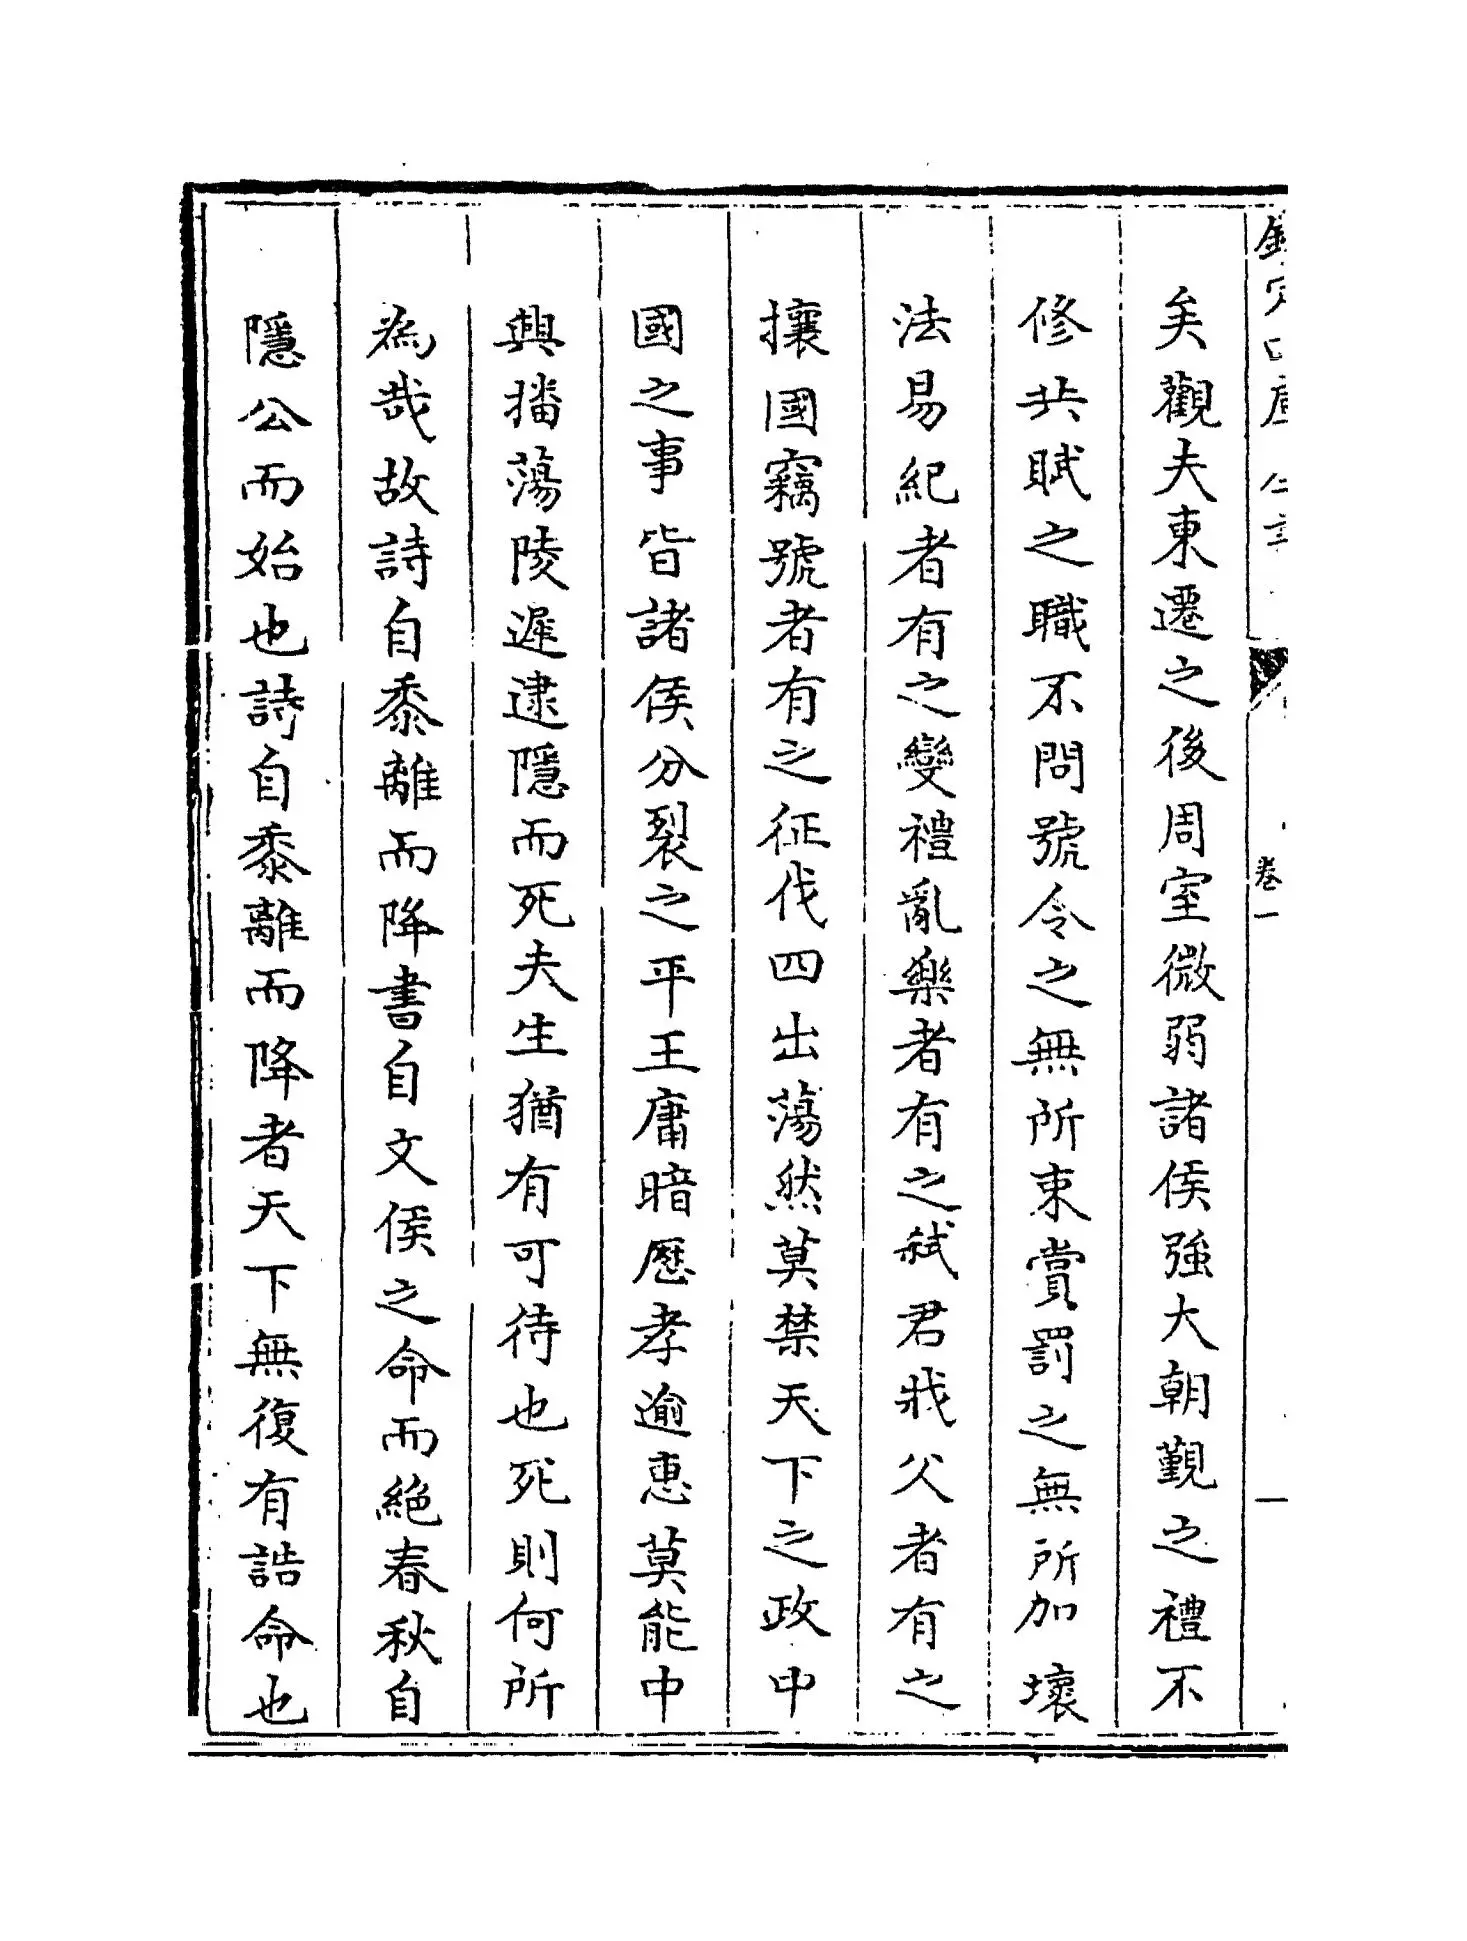 矣觀夫東遷之後周室微弱諸侯強大朝覲之禮不
修共賦之職不問號令之無所束賞罰之無所加壞
法易紀者有之變禮亂樂者有之弒君戕父者有之
攘國竊號者有之征伐四出蕩然莫禁天下之政中
國之事皆諸侯分裂之平王庸暗歷孝逾惠莫能中
興播蕩陵遲逮隱而死夫生猶有可待也死則何所
為哉故詩自黍離而降書自文侯之命而絕春秋自
隱公而始也詩自黍離而降者天下無復有誥命也
卷一